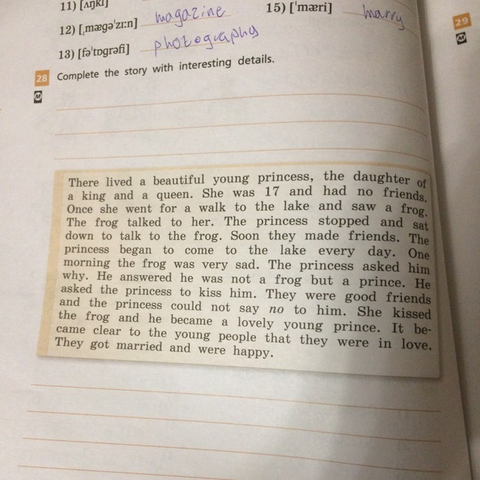 11) [ʌŋkl]
12) [ˌmægəˈzɪːn] magazine
13) [fəˈtɒgrəfi] photography
15) [ˈmæri] marry
29
28 Complete the story with interesting details.
There lived a beautiful young princess, the daughter of
a king and a queen. She was 17 and had no friends.
Once she went for a walk to the lake and saw a frog.
The frog talked to her. The princess stopped and sat
down to talk to the frog. Soon they made friends. The
princess began to come to the lake every day. One
morning the frog was very sad. The princess asked him
why. He answered he was not a frog but a prince. He
asked the princess to kiss him. They were good friends
and the princess could not say no to him. She kissed
the frog and he became a lovely young prince. It be-
came clear to the young people that they were in love.
They got married and were happy.